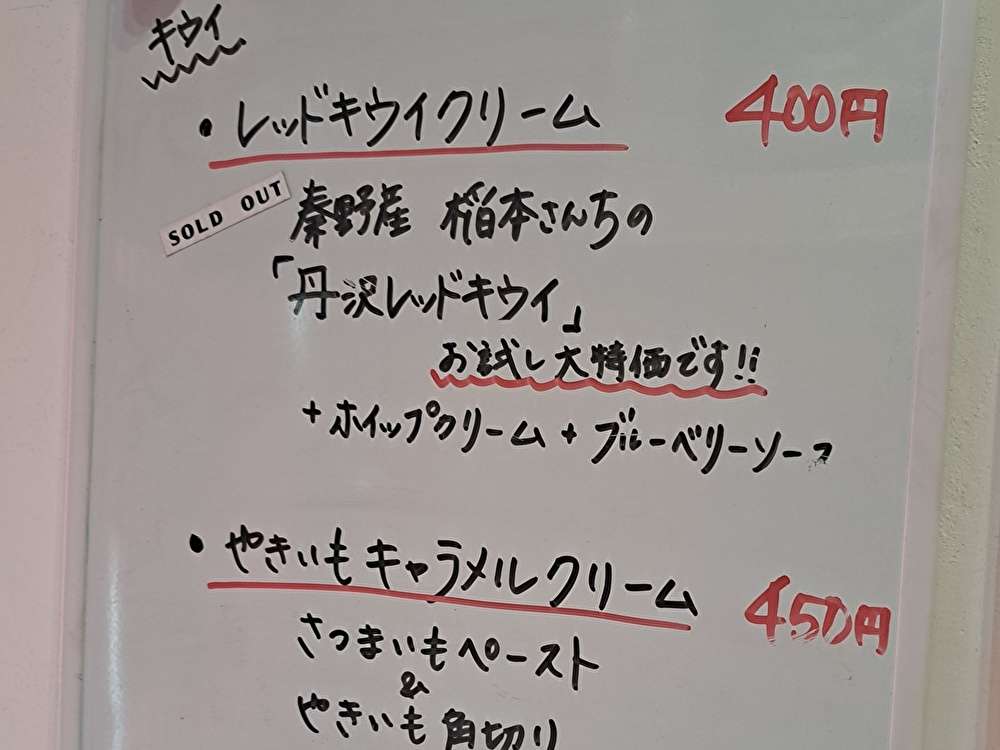 キウイ
・レッドキウイクリーム 400円
SOLD OUT 秦野産 柏本さんちの
「丹沢レッドキウイ」
お試し大特価です!!
+ホイップクリーム+ブルーベリーソース
・やきいもキャラメルクリーム 450円
さつまいもペースト
&
やきいも角切り